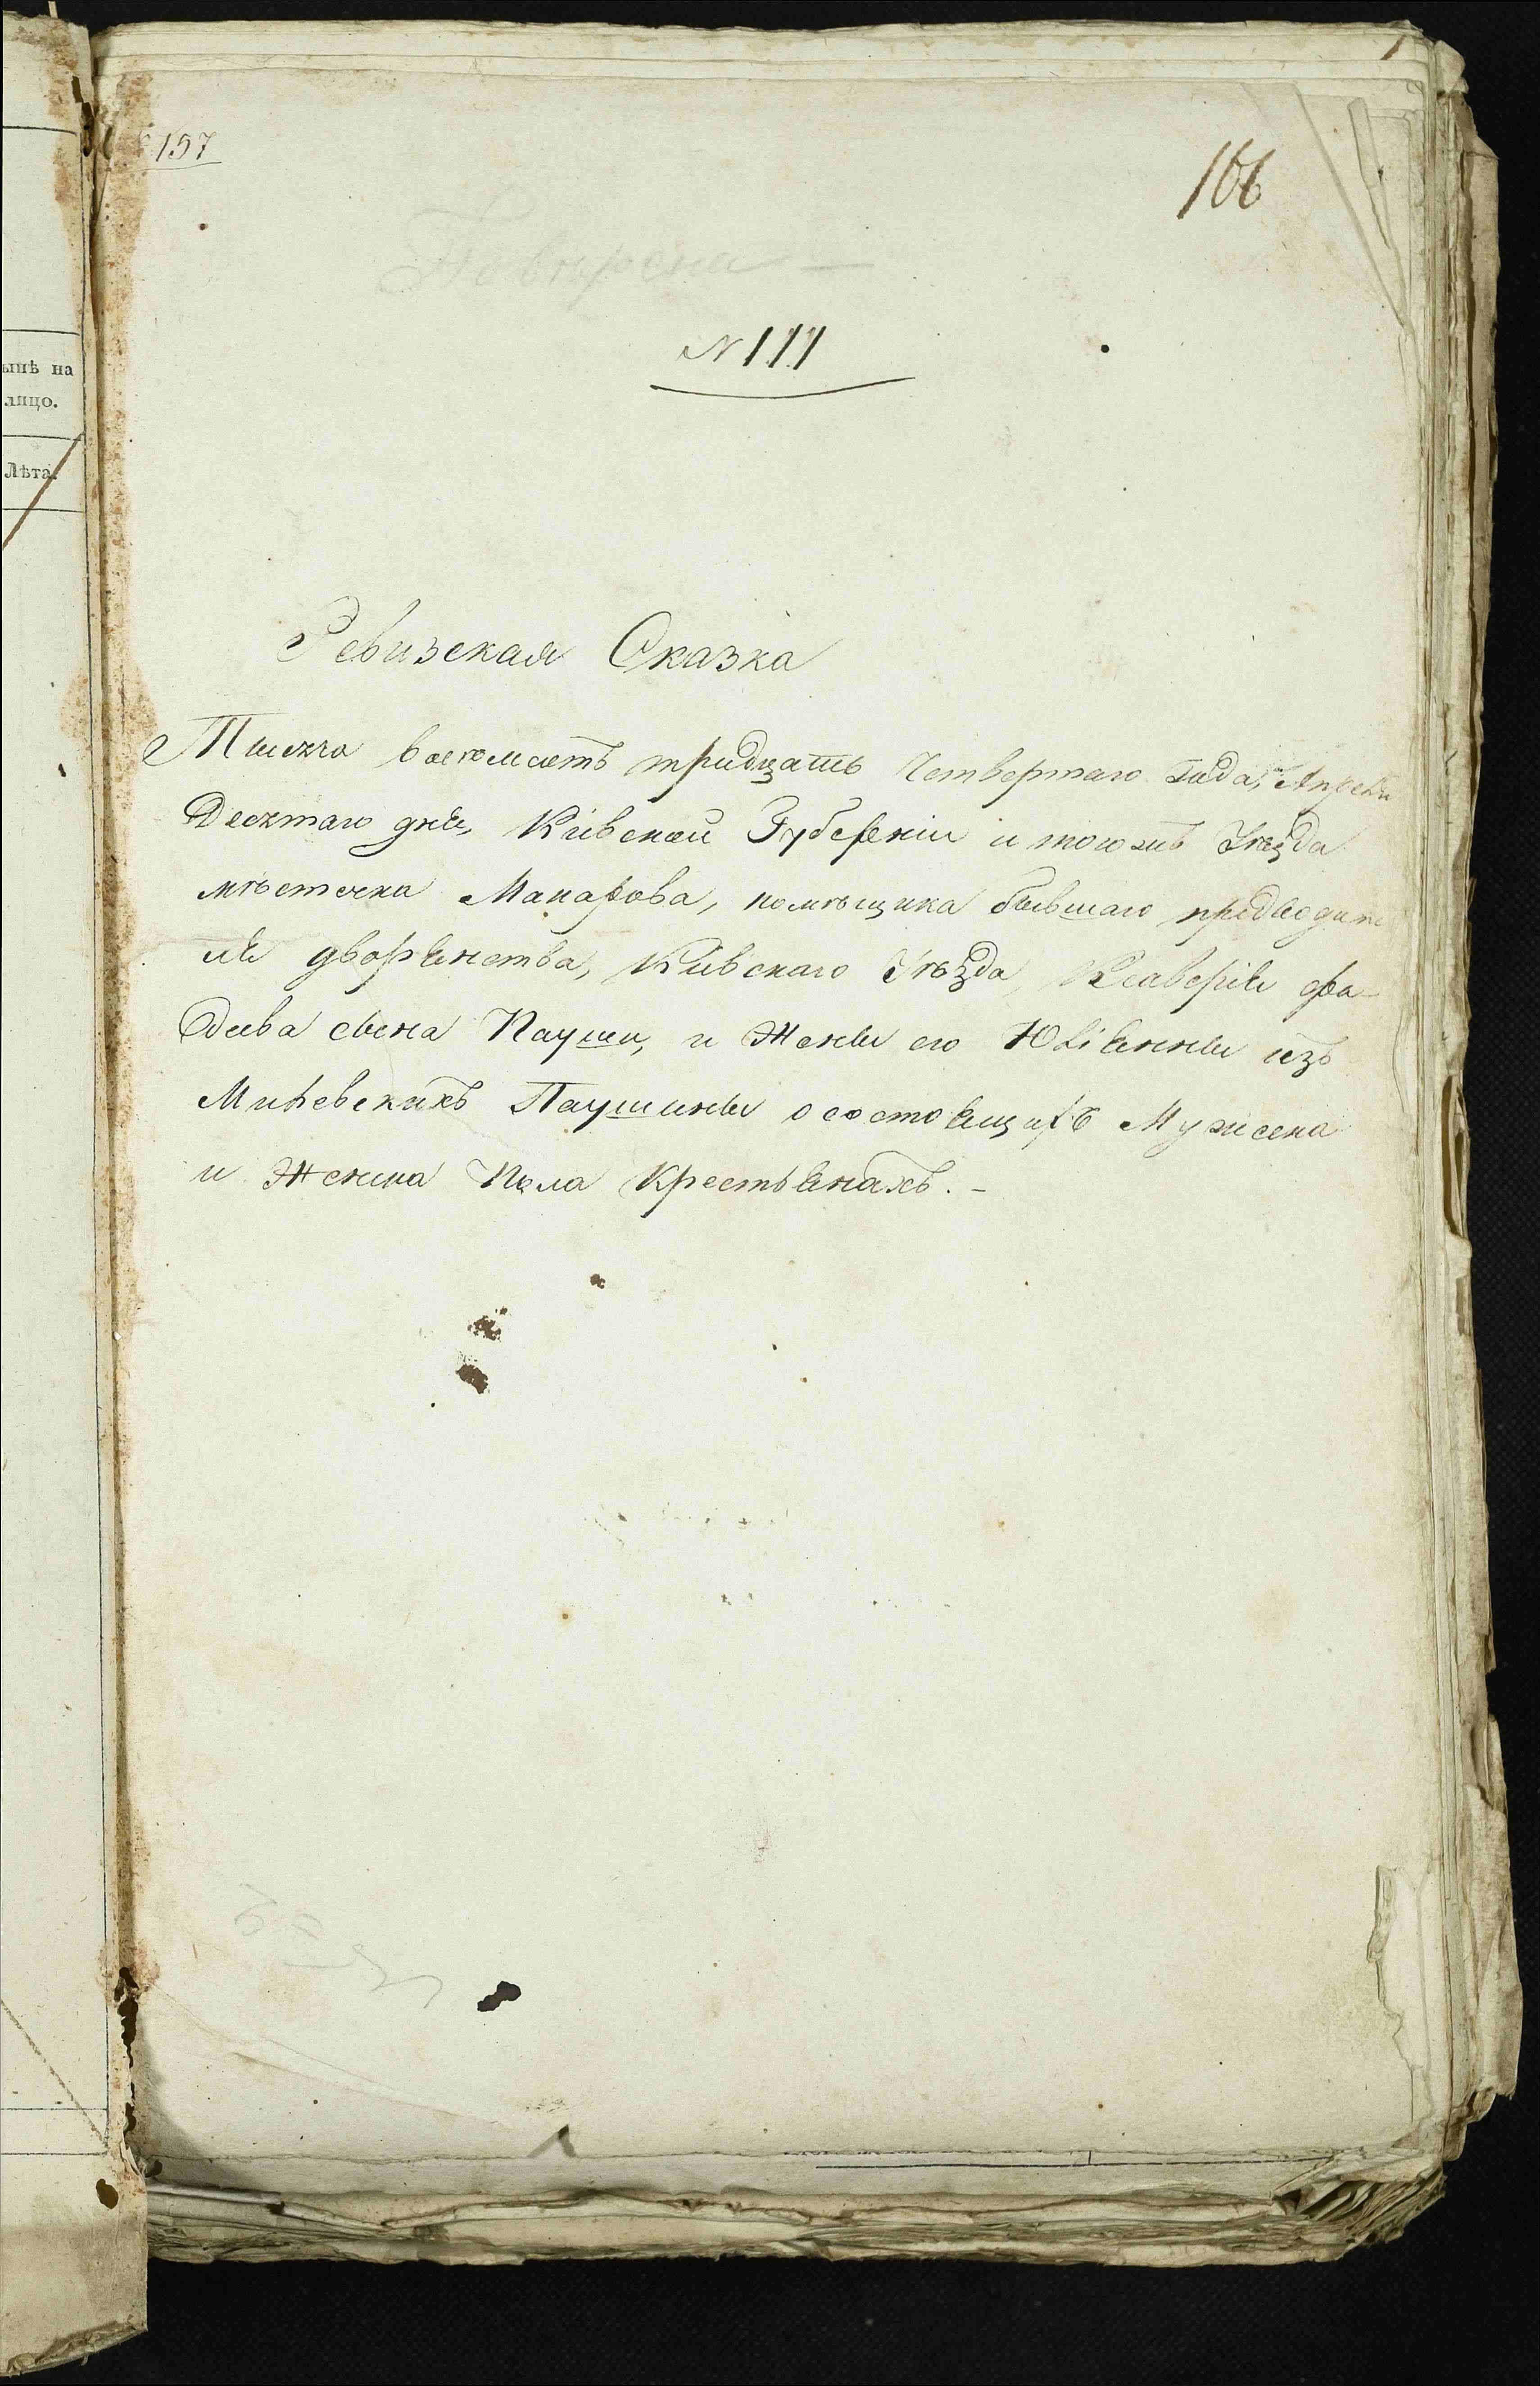 157
166
Повѣрена —
N 111
Ревизская Сказка
Тысяча восемсотъ тридцать Четвертаго Года, Апреля
Десятаго дня, Кіевской Губерніи и того жъ Уѣзда
мѣстечка Макарова, помѣщика бывшаго предводите
ля дворянства, Кіевскаго Уѣзда, Ксаверія Фа-
дѣева сына Пауши, и Жены его Юліянны изъ
Паушины о состоящихъ Мужеска
и Женска Пола Крестьянахъ. -
ынѣ на
лицо.
Лѣта.